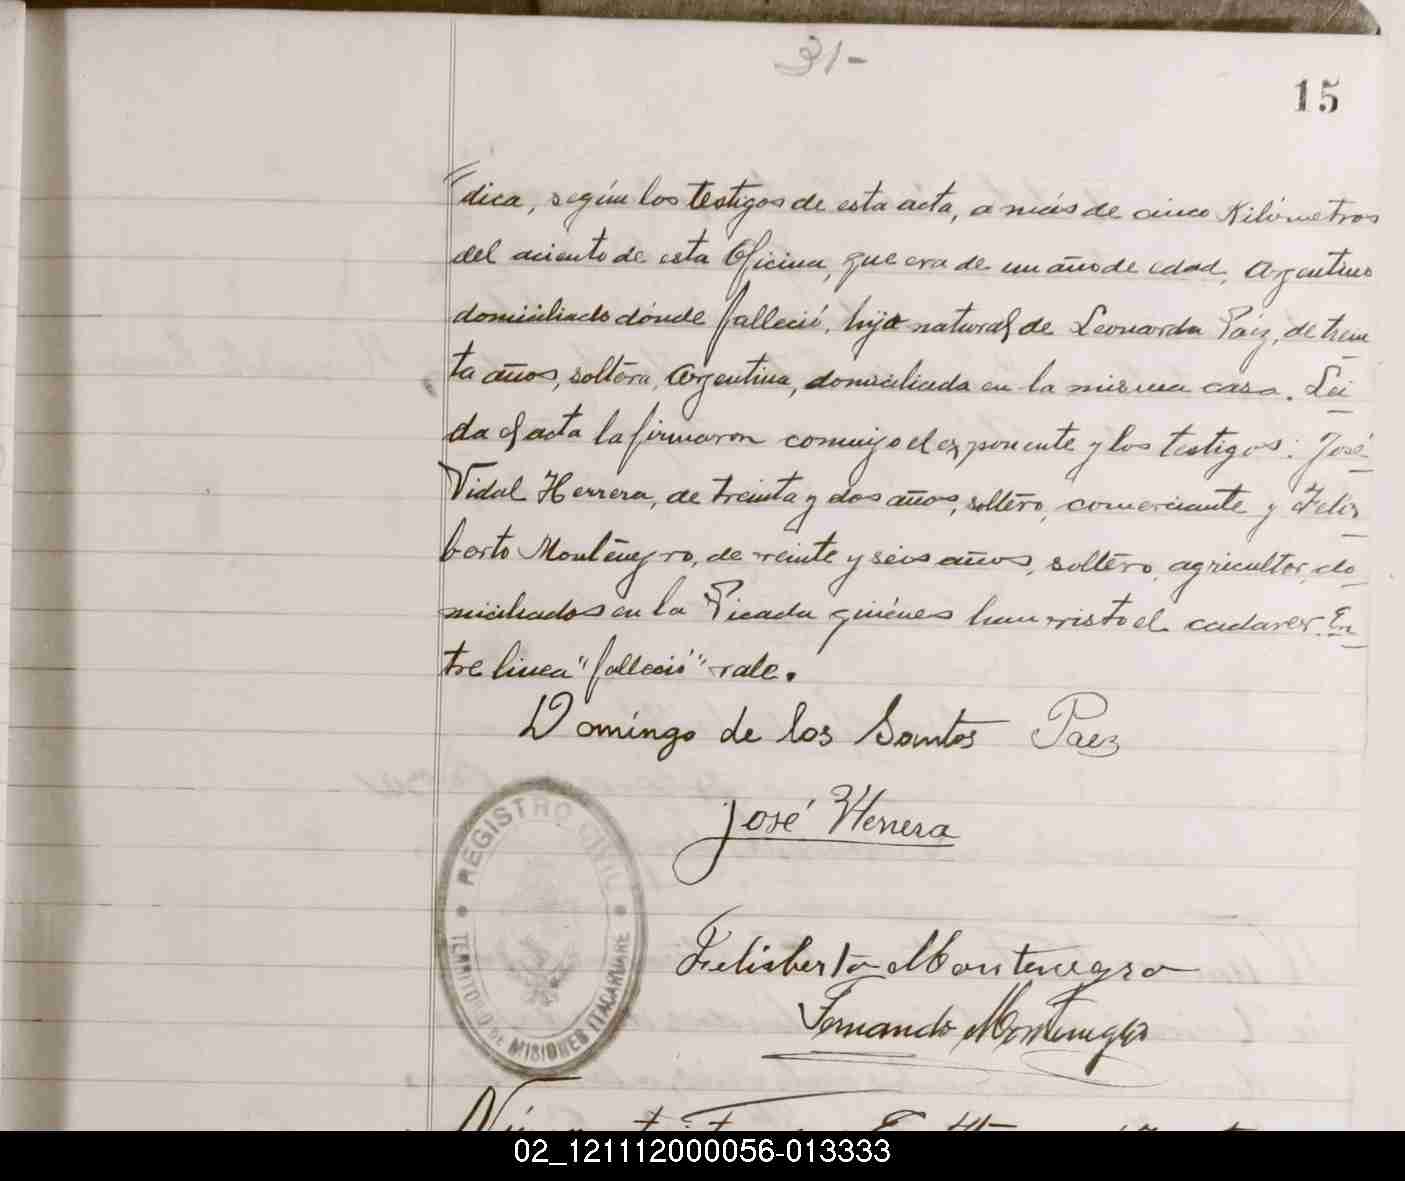 31-
15
dica, según los testigos de esta acta, a más de cinco Kilómetros
del aciento de esta Oficina, que era de un año de edad, Argentino
domiciliado dónde falleció, hijo natural de Leonarda Páez, de trein
ta años, soltera, Argentina, domiciliada en la misma casa. Lei
da el acta la firmaron conmigo el exponente y los testigos: José
Vidal Herrera, de treinta y dos años, soltero, comerciante y Felis
berto Montenegro, de veinte y seis años, soltero, agricultor, do
miciliados en la Picada quiénes han visto el cadáver. En
tre linea "falleció" vale.
Domíngo de los Santos Paez
José Herrera
REGISTRO CIVIL
TERRITORIO DE MISIONES ITACARUARE
Felisberto Montenegro
Fernando Montenegro
02_121112000056-013333